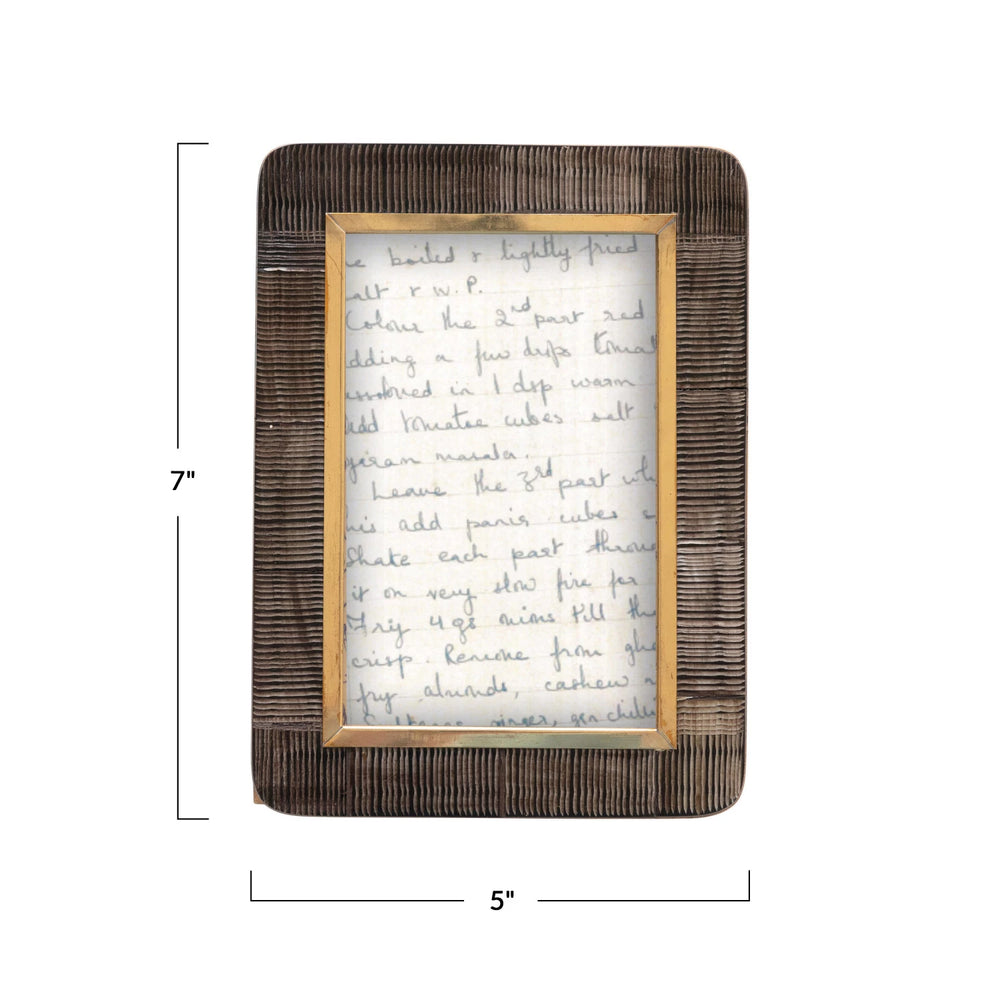 e boiled & lightly fried
alt & W.P.
Colour the 2nd part red
dding a few drops tomat
issolved in 1 dsp warm
add tomatoe cubes salt
garam masala.
Leave the 3rd part wh
his add panir cubes &
Shake each part throug
it on very slow fire for
Fry 4 gs mins till the
crisp. Remove from ghe
fry almonds, cashew n
ginger, grn chilli
7"
5"